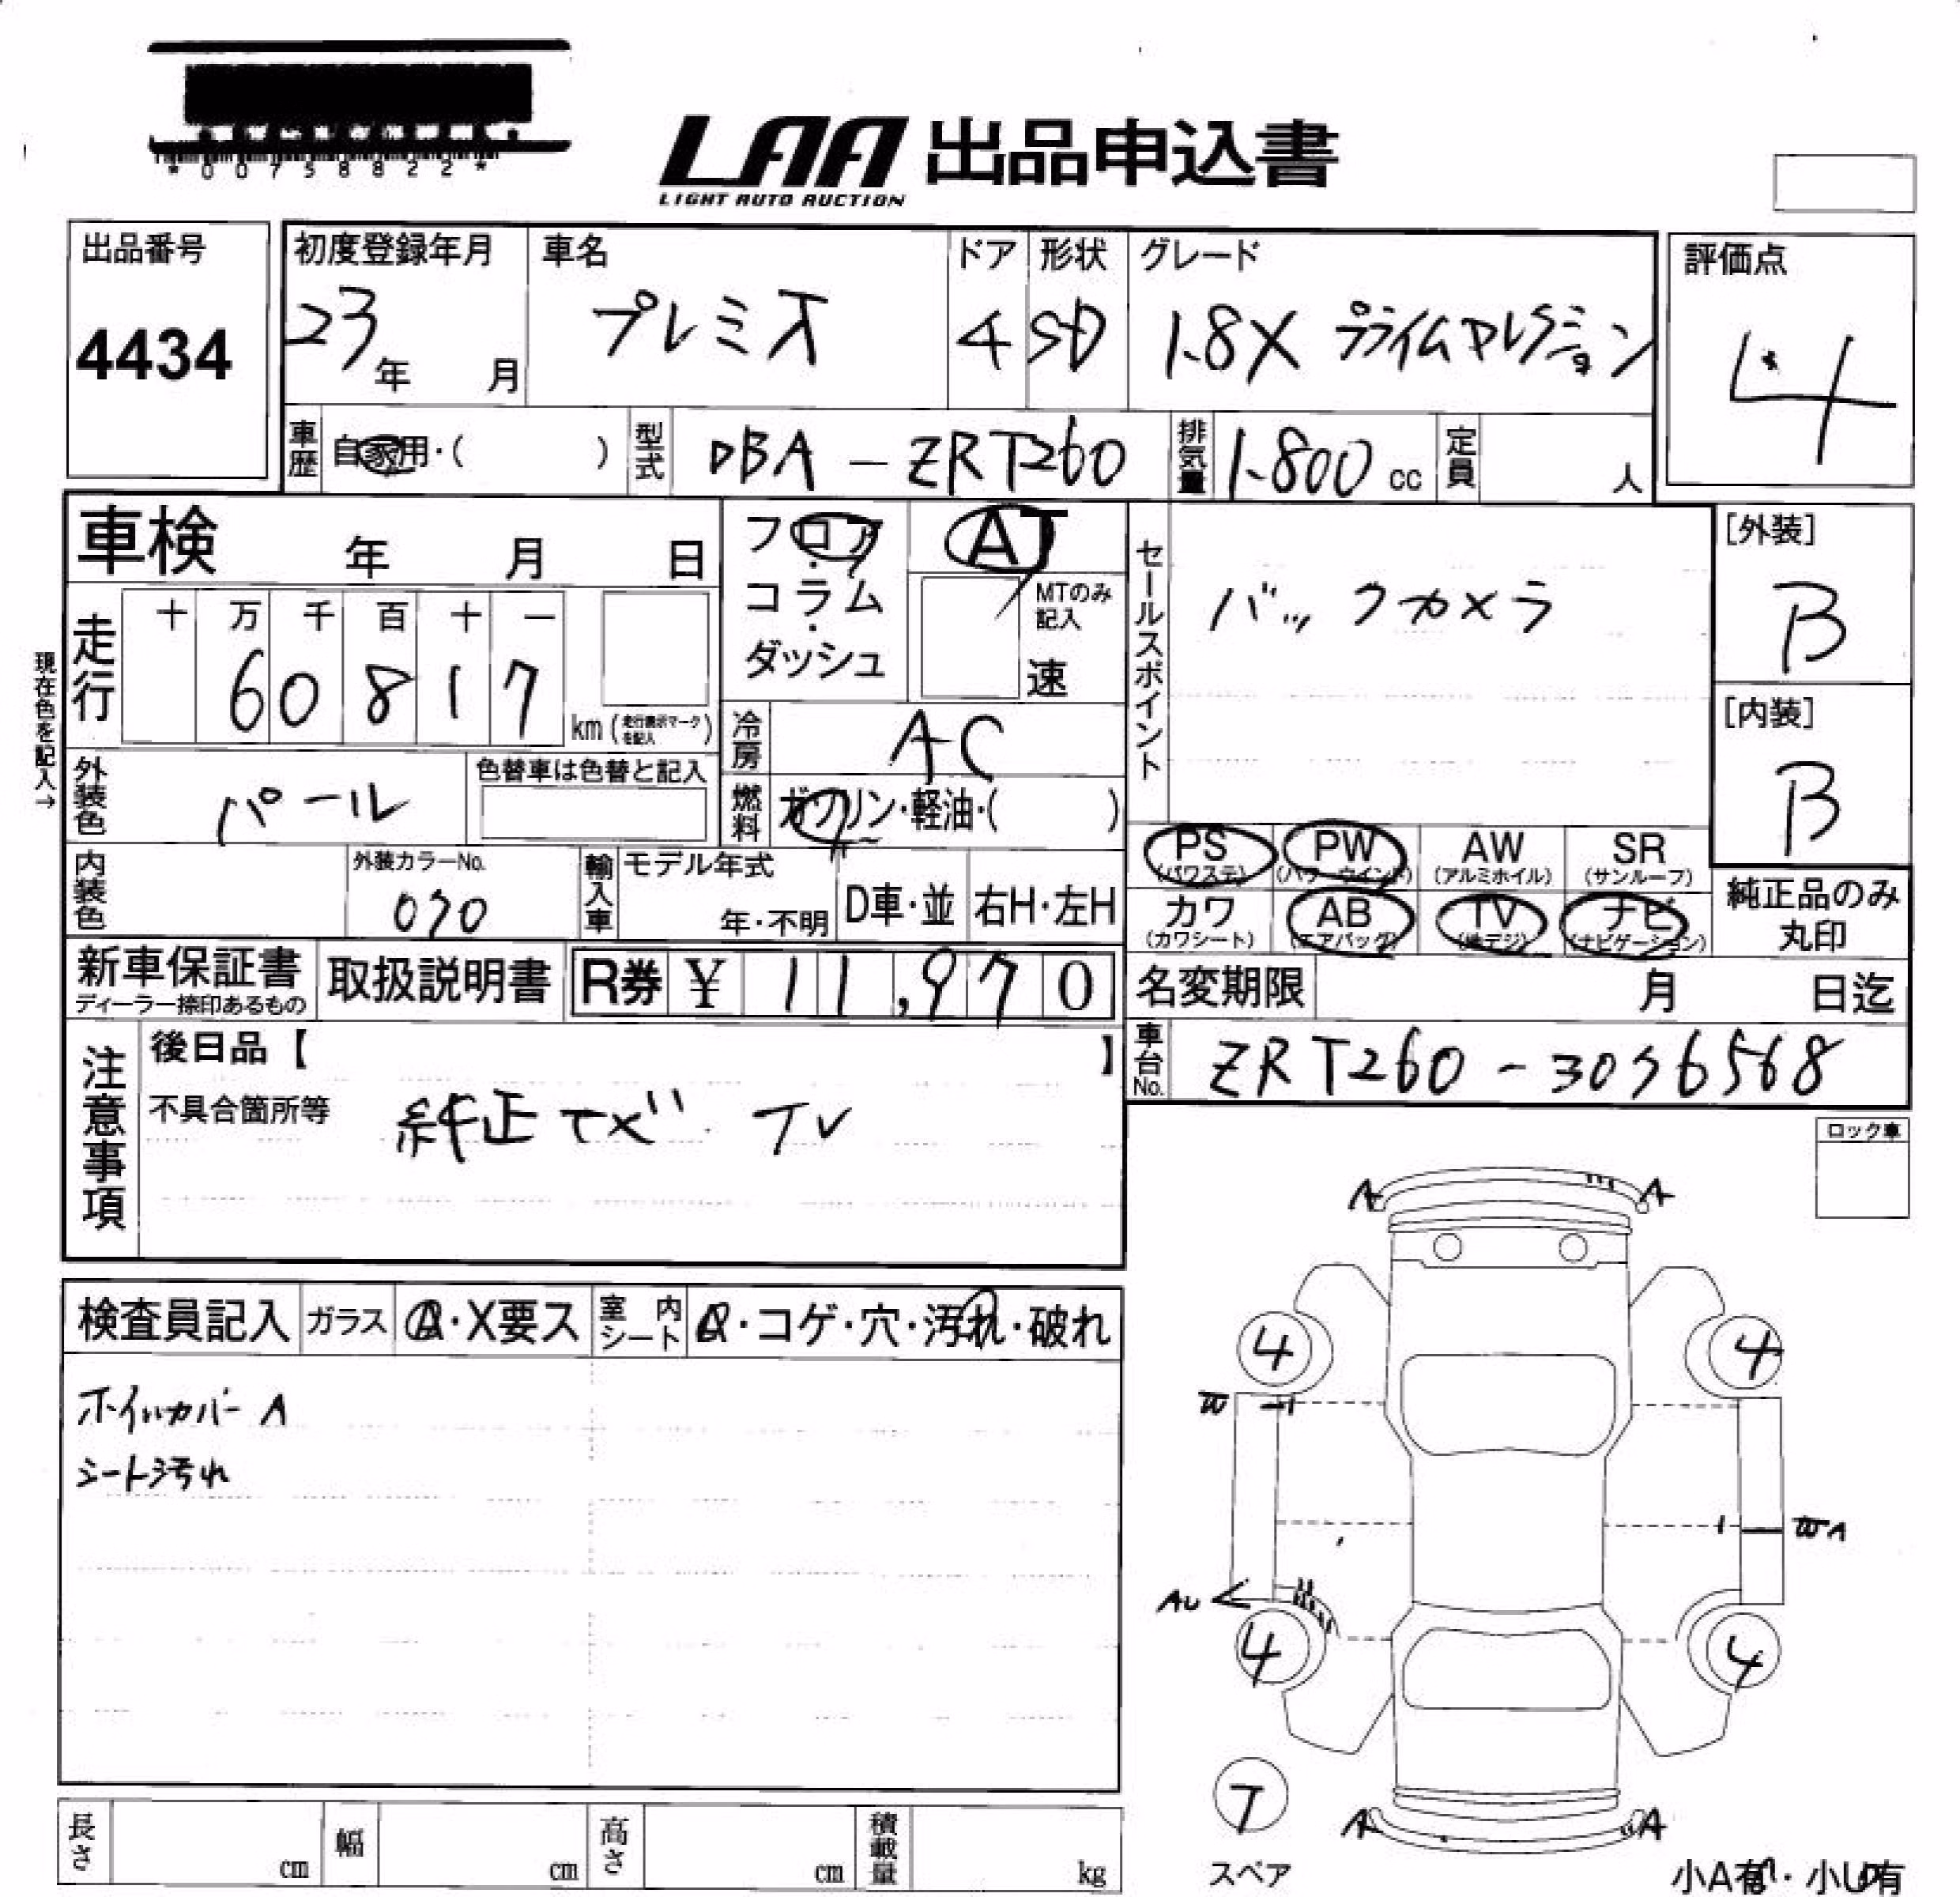 *00758822*
LAA 出品申込書
LIGHT AUTO AUCTION
出品番号
4434
初度登録年月
23年 月
車名
プレミオ
ドア
4
形状
SD
グレード
1.8X プライムセレクション
評価点
4
車歴
自家用・( )
型式
DBA-ZRT260
排気量
1.800 cc
定員
人
車検 年 月 日
フロア・コラム・ダッシュ
AT
MTのみ記入
速
セールスポイント
バックカメラ
[外装]
B
[内装]
B
現在色を記入→
走行
十 万 千 百 十 一
6 0 8 1 7
km (走行表示マークを記入)
冷房
AC
外装色
パール
色替車は色替と記入
燃料
ガソリン・軽油・( )
PS (パワステ)
PW (パワーウインド)
AW (アルミホイル)
SR (サンルーフ)
内装色
外装カラーNo.
070
輸入車
モデル年式
年・不明
D車・並
右H・左H
カワ (カワシート)
AB (エアバッグ)
TV (地デジ)
ナビ (ナビゲーション)
純正品のみ丸印
新車保証書
ディーラー捺印あるもの
取扱説明書
R券 ¥ 11,970
名変期限 月 日迄
車台No.
ZRT260-3056568
注意事項
後日品【 】
不具合箇所等
純正ナビ TV
ロック車
検査員記入
ガラス
A・X要ス
室内シート
・コゲ・穴・汚れ・破れ
ホイルカバーA
シート汚れ
A A
4 4
W
WA
AU
4 4
7
スペア
A A
長さ cm
幅 cm
高さ cm
積載量 kg
小A有・小U有